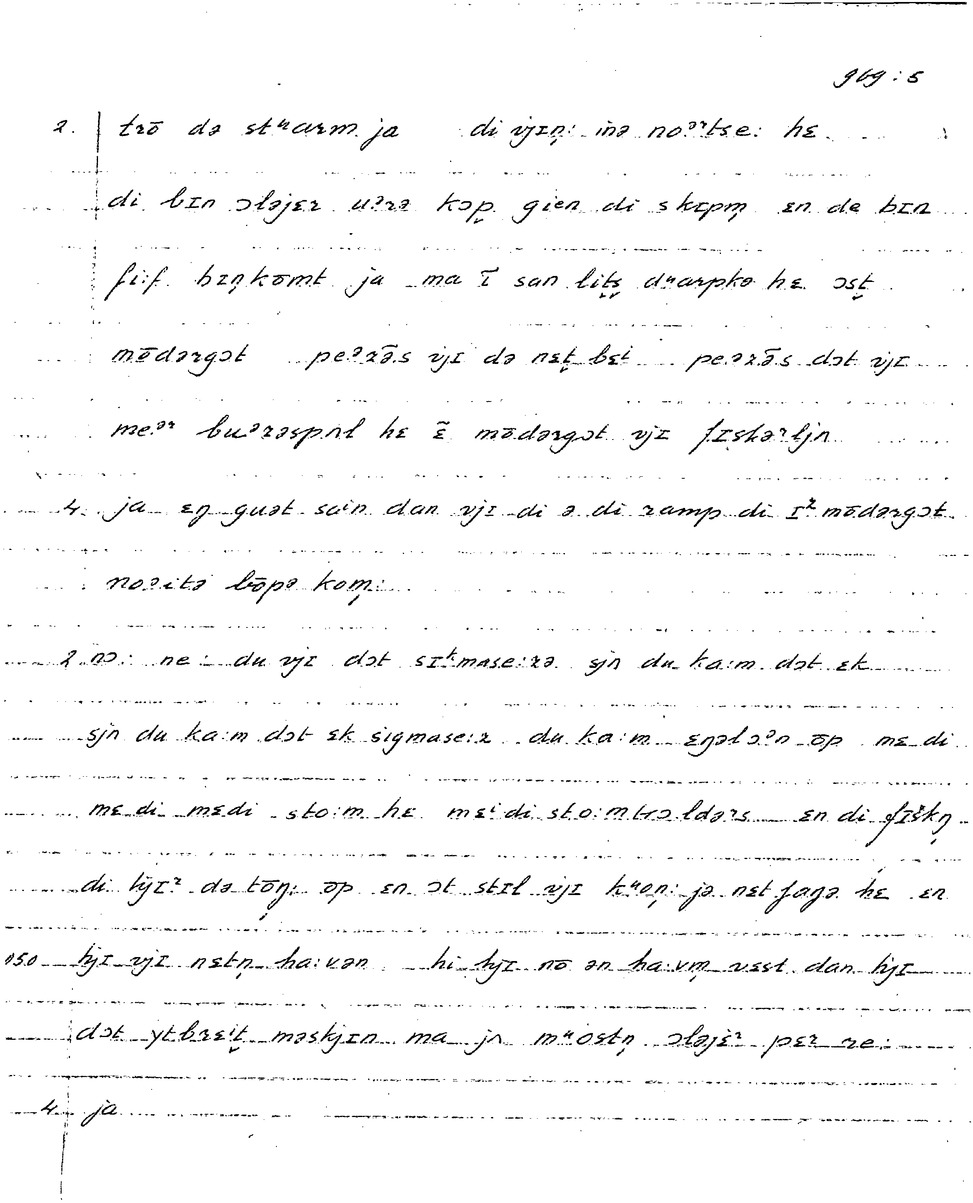 909 : 5
2. trō də stᵘarm ja di ʋjɪn̩ː ɪnə noᵊrtseː hɛ
di bɪn ɔləjɛr uᵊrə kɔp̬ gien di skɪpm̩ ɛn de bɪn
fiːf bɪŋ̩kōmt ja ma ĩ san lit̬s̬ dᵘarpkə hɛ ɔst̬
mōdərgɔt peᵊrā̃s ʋjɪ də nɛt̬ bɛⁱ peᵊrā̃s dɔt ʋjɪ
meːᵊʳ buᵊrəspʌl hɛ ɛ̃ mōdərgɔt ʋjɪ fɪskərljn
4. ja ɛŋ guət saⁱn dan ʋjɪ di ə di ramp di ɪʳ mōdərgɔt
noəitə bōpə kom̩ː
2 nɔː neː du ʋjɪ dɔt sɪᵏmaseːrə sjn du kaːm dɔt ɛk
sjn du kaːm dɔt ɛk sigmaseːr du kaːm ɛŋəlɔᵊn ōp mɛ di
mɛ di mɛ di stoːm hɛ mɛⁱ di stoːmtrɔldərs ɛn di fɪškŋ̩
di ljɪʳ də tōŋ̩ː ōp ɛn ɔt stɪl ʋjɪ kᵘon̩ː jə nɛt faŋə hɛ ɛn
050 ljɪ ʋjɪ nɛtn̩ haːvən hi ljɪ nō ən haːvm̩ vɛst dan ljɪ
dɔt ytbrɛⁱt̬ məskjɪn ma jn mᵘostn̩ ɔləjɛʳ pɛr reː
4. ja